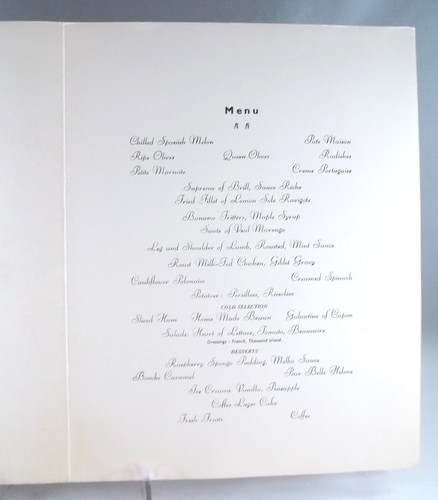 Menu
Chilled Spanish Melon Pate Maison
Ripe Olives Queen Olives Radishes
Petite Marmite Creme Portugaise
Supreme of Brill, Sauce Riche
Fried Fillet of Lemon Sole Ravigote
Banana Fritters, Maple Syrup
Saute of Veal Marengo
Leg and Shoulder of Lamb, Roasted, Mint Sauce
Roast Milk-Fed Chicken, Giblet Gravy
Cauliflower Polonaise Creamed Spinach
Potatoes : Persillees, Rissolees
COLD SELECTION
Sliced Ham Home Made Brawn Galantine of Capon
Salads: Heart of Lettuce, Tomato, Beaucaire
Dressings : French, Thousand Island.
DESSERTS
Raspberry Sponge Pudding, Melba Sauce
Bombe Caramel Pear Belle Helene
Ice Cream: Vanilla, Pineapple
Coffee Layer Cake
Fresh Fruits Coffee